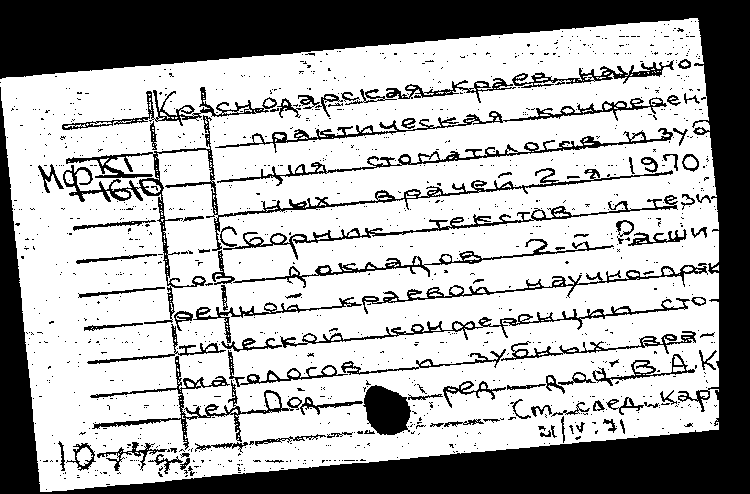 Краснодарская краев. научно-
практическая конферен-
ция стоматологов и зуб-
Мф К1
1610
ных врачей, 2-я. 1970.
Сборник текстов и тези-
сов докладов 2-й Расши-
ренной краевой научно-прак
тической конференции сто-
матологов и зубных вра-
чей Под ред. доц. В.А.К
См. след. карт
21/IV-71
10